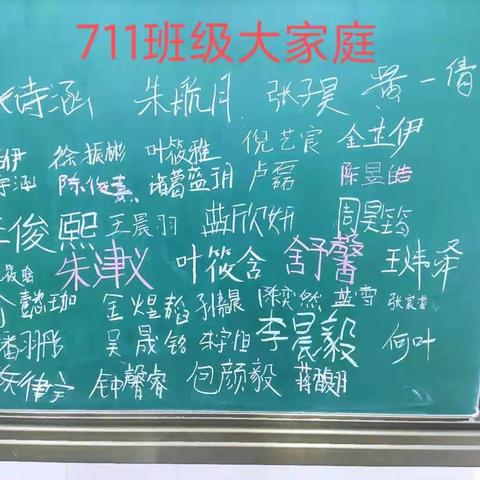 711班级大家庭
诗涵 朱航月 张子昊 黄一倩
伊 徐振彬 叶筱雅 倪艺宸 金芷伊
涵 陈俊熹 诸葛蓝玥 卢磊 陈昱皓
王俊熙 王晨羽 蓝欣妍 周昊筠
朱津义 叶筱含 舒馨 王炜泽
懿珈 金煜韬 孔 陈奕然 蓝雪
潘羽彤 吴晟铭 朱宇恒 李晨毅 何叶
陈律宇 钟馨睿 包颜毅 蒋馥玥